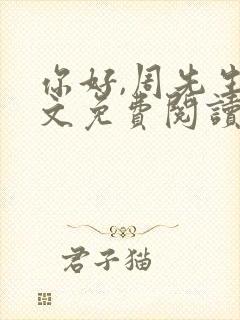 你好,周先生
文免费閱讀
君子猫